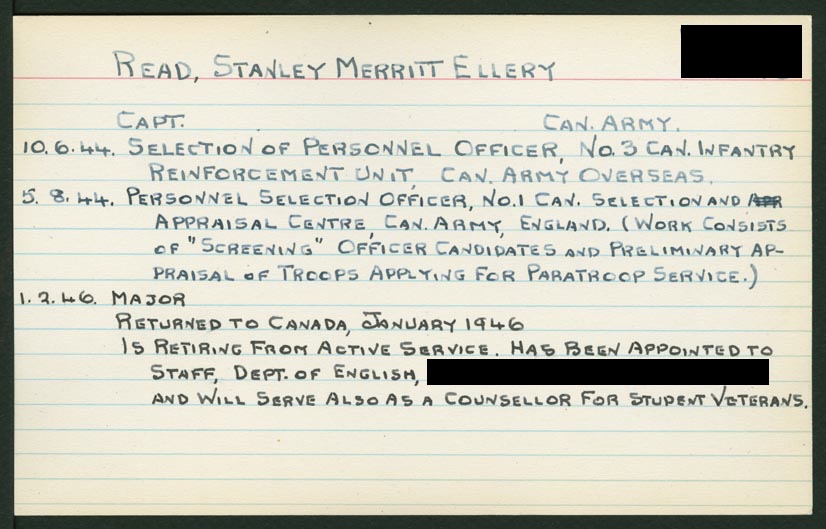 READ, STANLEY MERRITT ELLERY
CAPT. CAN. ARMY.
10.6.44. SELECTION OF PERSONNEL OFFICER, NO. 3 CAN. INFANTRY
REINFORCEMENT UNIT, CAN. ARMY OVERSEAS.
5.8.44. PERSONNEL SELECTION OFFICER, NO. 1 CAN. SELECTION AND APR
APPRAISAL CENTRE, CAN. ARMY, ENGLAND. (WORK CONSISTS
OF "SCREENING" OFFICER CANDIDATES AND PRELIMINARY AP-
PRAISAL OF TROOPS APPLYING FOR PARATROOP SERVICE.)
1.2.46. MAJOR
RETURNED TO CANADA, JANUARY 1946
IS RETIRING FROM ACTIVE SERVICE. HAS BEEN APPOINTED TO
STAFF, DEPT. OF ENGLISH,
AND WILL SERVE ALSO AS A COUNSELLOR FOR STUDENT VETERANS.